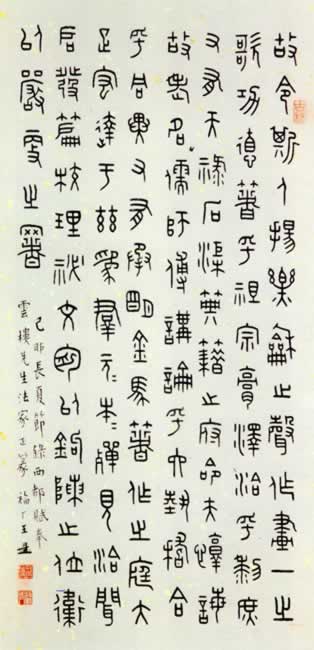 故令斯人揚樂龢之聲作畫一之
歌功德著乎祖宗膏澤洽乎黎庶
又有天祿石渠典籍之府命夫惇誨
故老名儒師傅講論乎六藝稽合
乎同異又有承明金馬著作之庭大
疋宏達于茲為羣元〻本〻殫見洽聞
启發篇校理祕文周以鉤陳之位衛
以嚴更之署
己卯長夏節錄西都賦奉
雲樓先生法家正篆 福厂王禔